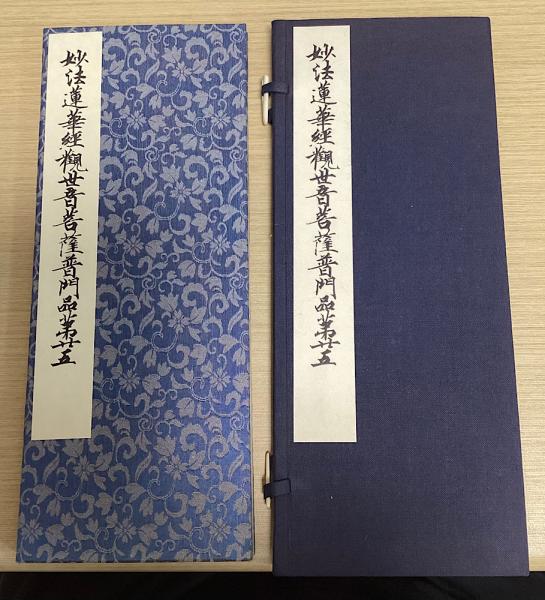 妙法蓮華經觀世音菩薩普門品第廿五
妙法蓮華經觀世音菩薩普門品第廿五